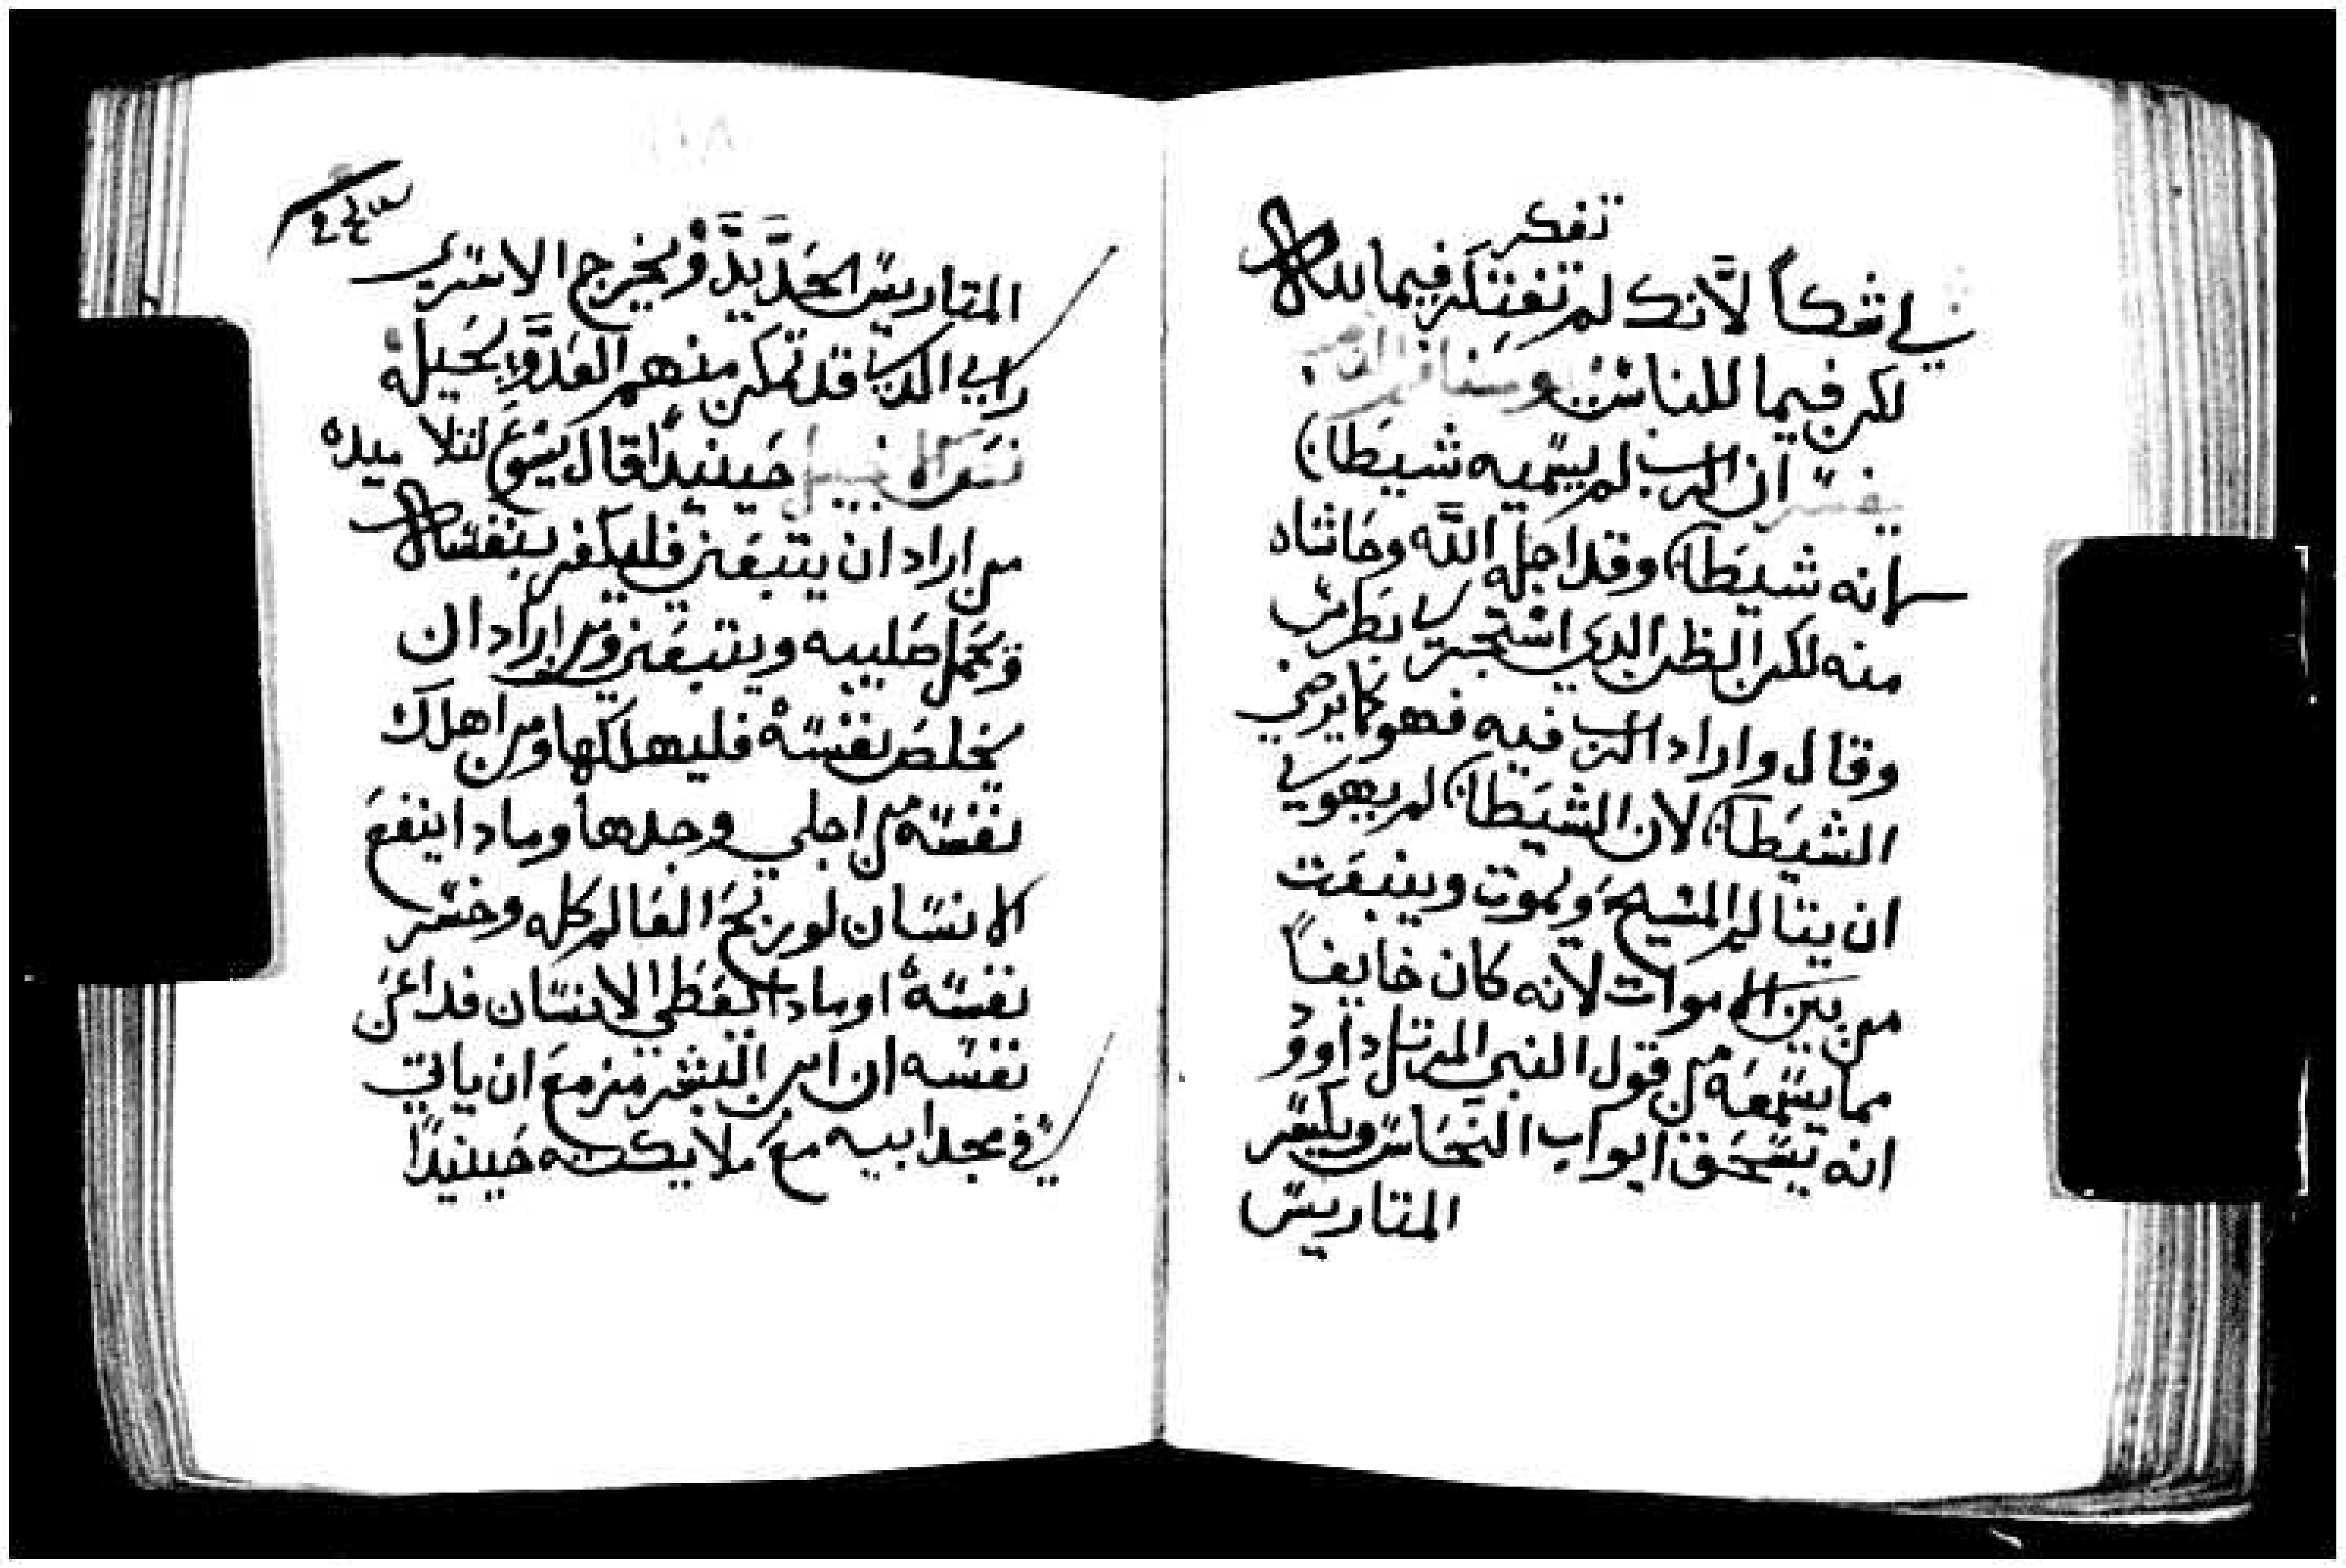 تفكر
لي شكاً لأنك لم تفتكر فيما لله
لكن فيما للناس
تفسير ان الرب لم يسميه شيطان
انه شيطان وقد اجله الله وحاشاه
منه لكن الظن الدي استجرى بطرس
وقال واراد الرب فيه فهو كما يرضي
الشيطان لان الشيطان لم يهوى
ان يتالم المسيح ويموت وينبعت
من بين الاموات لانه كان خايفاً
مما يسمعه من قول النبي المرتل داوود
انه يسحق ابواب النحاس ويكسر
المتاريس
٢٤٣
المتاريس الحديد ويخرج الاسرى
الدين قد تمكن منهم العدو بحيله
حينيداً قال يسوع لتلاميده
من اراد ان يتبعني فليكفر بنفسه
ويحمل صليبه ويتبعني ومن اراد ان
يخلص نفسه فليهلكها ومن اهلك
نفسه من اجلي وجدها ومادا ينفع
الانسان لو ربح العالم كله وخسر
نفسه او مادا يعطي الانسان فدا عن
نفسه ان ابن البشر مزمع ان ياتي
في مجد ابيه مع ملايكته حينيداً